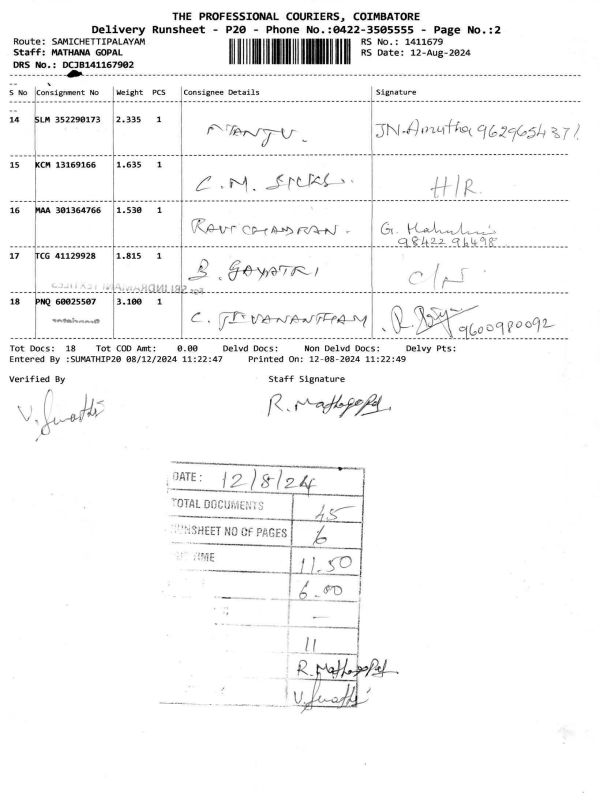 THE PROFESSIONAL COURIERS, COIMBATORE
Delivery Runsheet - P20 - Phone No.:0422-3505555 - Page No.:2
Route: SAMICHETTIPALAYAM RS No.: 1411679
Staff: MATHANA GOPAL RS Date: 12-Aug-2024
DRS No.: DCJB141167902
S No Consignment No Weight PCS Consignee Details Signature
14 SLM 352290173 2.335 1 MANJU. JN-Amutha 9629654371
15 KCM 13169166 1.635 1 C. M. H/R
16 MAA 301364766 1.530 1 RAVICHANDRAN. G.
9842296498
17 TCG 41129928 1.815 1 B. GAYATRI C/N
18 PNQ 60025507 3.100 1 C. JEEVANANTHAM R. 9600980092
Tot Docs: 18 Tot COD Amt: 0.00 Delvd Docs: Non Delvd Docs: Delvy Pts:
Entered By :SUMATHIP20 08/12/2024 11:22:47 Printed On: 12-08-2024 11:22:49
Verified By Staff Signature
V. Sumathi R. Mathagopal
DATE: 12/8/24
TOTAL DOCUMENTS 45
RUNSHEET NO OF PAGES 6
TIME 11.50
6.00
—
11
R. Mathagopal
V. Sumathi